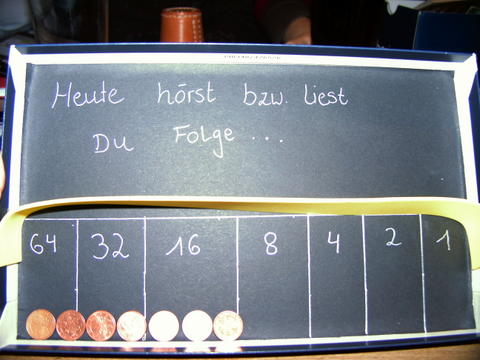 Heute hörst bzw. liest
Du Folge ...
64 32 16 8 4 2 1